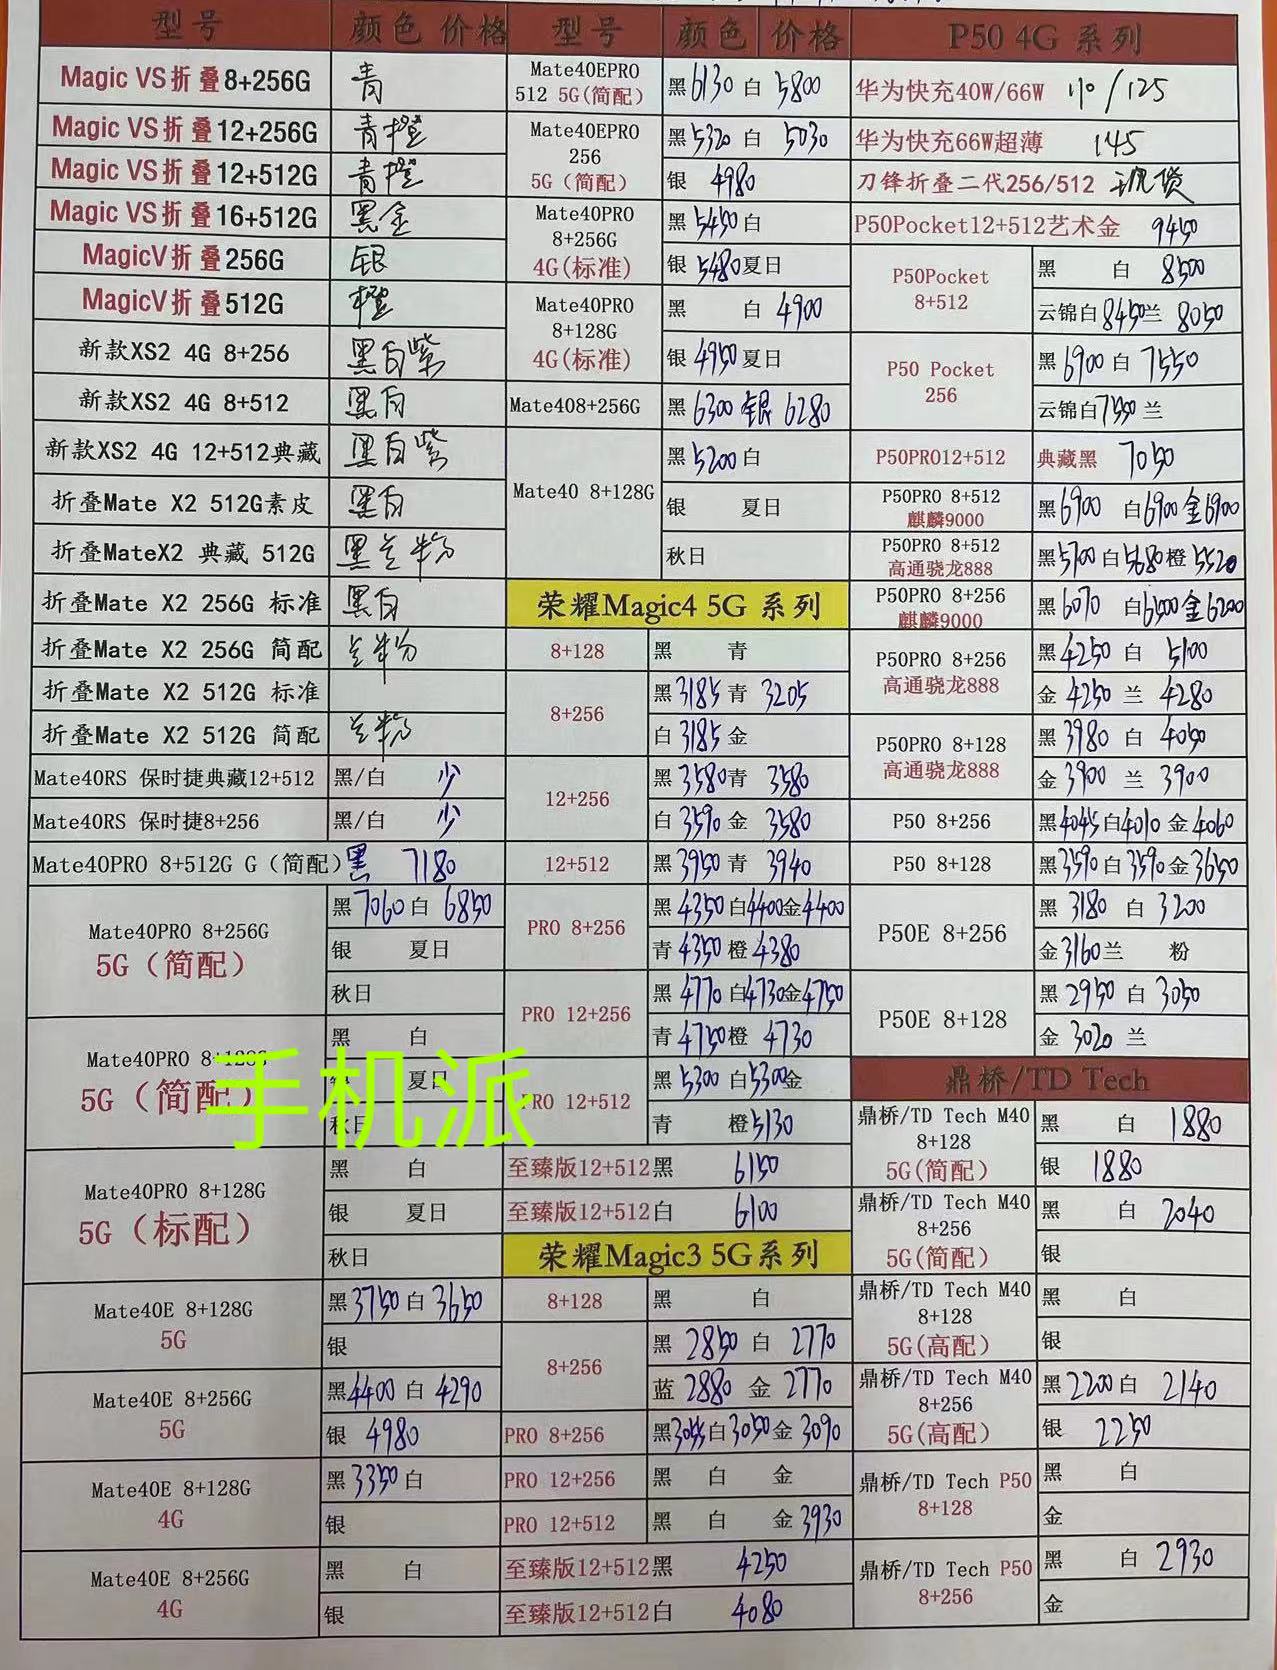 型号 颜色 价格
Magic VS折叠8+256G 青
Magic VS折叠12+256G 青橙
Magic VS折叠12+512G 青橙
Magic VS折叠16+512G 黑金
MagicV折叠256G 银
MagicV折叠512G 橙
新款XS2 4G 8+256 黑白紫
新款XS2 4G 8+512 黑白
新款XS2 4G 12+512典藏 黑白紫
折叠Mate X2 512G素皮 黑白
折叠MateX2 典藏 512G 黑兰粉
折叠Mate X2 256G 标准 黑白
折叠Mate X2 256G 简配 兰粉
折叠Mate X2 512G 标准
折叠Mate X2 512G 简配 兰粉
Mate40RS 保时捷典藏12+512 黑/白 少
Mate40RS 保时捷8+256 黑/白 少
Mate40PRO 8+512G G（简配）黑 7180
Mate40PRO 8+256G
5G（简配）
黑 7060 白 6850
银 夏日
秋日
Mate40PRO 8+128G
5G（简配）
黑 白
银 夏日
秋日
手机派
Mate40PRO 8+128G
5G（标配）
黑 白
银 夏日
秋日
Mate40E 8+128G
5G
黑3750白3650
银
Mate40E 8+256G
5G
黑4400白4290
银 4980
Mate40E 8+128G
4G
黑3350白
银
Mate40E 8+256G
4G
黑 白
银
型号 颜色 价格
Mate40EPRO
512 5G(简配)
黑6130白 5800
Mate40EPRO
256
5G（简配）
黑5320白 5030
银 4980
Mate40PRO
8+256G
4G(标准)
黑5450白
银5480夏日
Mate40PRO
8+128G
4G(标准)
黑 白4900
银4950夏日
Mate408+256G 黑6300银6280
Mate40 8+128G
黑5200白
银 夏日
秋日
荣耀Magic4 5G 系列
8+128 黑 青
8+256
黑3185青 3205
白3185金
12+256
黑3580青 3580
白3590金 3580
12+512 黑3950青 3940
PRO 8+256
黑4350白4400金4400
青4350橙4380
PRO 12+256
黑4770白4730金4750
青4750橙4730
PRO 12+512
黑5300白5300金
青 橙5130
至臻版12+512黑 6150
至臻版12+512白 6100
荣耀Magic3 5G系列
8+128 黑 白
8+256
黑 2850 白 2770
蓝 2880 金 2770
PRO 8+256 黑3055白3050金3090
PRO 12+256 黑 白 金
PRO 12+512 黑 白 金3930
至臻版12+512黑 4250
至臻版12+512白 4080
P50 4G 系列
华为快充40W/66W 110/125
华为快充66W超薄 145
刀锋折叠二代256/512 现货
P50Pocket12+512艺术金 9450
P50Pocket
8+512
黑 白 8500
云锦白8450兰 8050
P50 Pocket
256
黑6900白7550
云锦白7550兰
P50PRO12+512 典藏黑 7050
P50PRO 8+512
麒麟9000
黑6900 白6900金6900
P50PRO 8+512
高通骁龙888
黑5700白5680橙5520
P50PRO 8+256
麒麟9000
黑6070 白6400金6200
P50PRO 8+256
高通骁龙888
黑4250白 5100
金4250兰 4280
P50PRO 8+128
高通骁龙888
黑3980白 4050
金3900兰 3900
P50 8+256 黑4045白4010金4060
P50 8+128 黑3590白3590金3650
P50E 8+256
黑 3180 白 3200
金3160兰 粉
P50E 8+128
黑 2950 白 3050
金 3020 兰
鼎桥/TD Tech
鼎桥/TD Tech M40
8+128
5G(简配)
黑 白 1880
银 1880
鼎桥/TD Tech M40
8+256
5G(简配)
黑 白 2040
银
鼎桥/TD Tech M40
8+128
5G(高配)
黑 白
银
鼎桥/TD Tech M40
8+256
5G(高配)
黑2200白 2140
银 2250
鼎桥/TD Tech P50
8+128
黑 白
金
鼎桥/TD Tech P50
8+256
黑 白2930
金